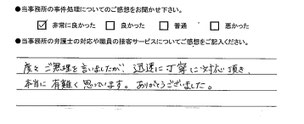 ●当事務所の事件処理についてのご感想をお聞かせ下さい。
☑ 非常に良かった □ 良かった □ 普通 □ 悪かった
●当事務所の弁護士の対応や職員の接客サービスについてご感想をご記入ください。
度々ご無理を言いましたが、迅速に丁寧に対応頂き、
本当に有難く思っています。ありがとうございました。